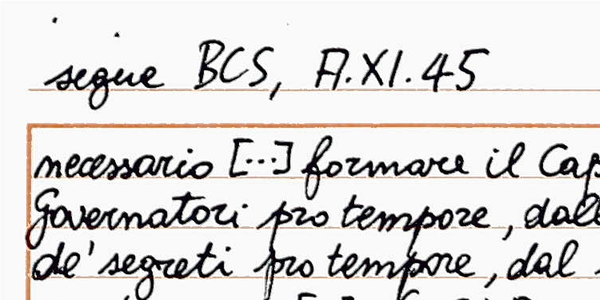 segue BCS, A.XI.45
necessario [...] formare il Cap
Governatori pro tempore, dall
de' segreti pro tempore, dal